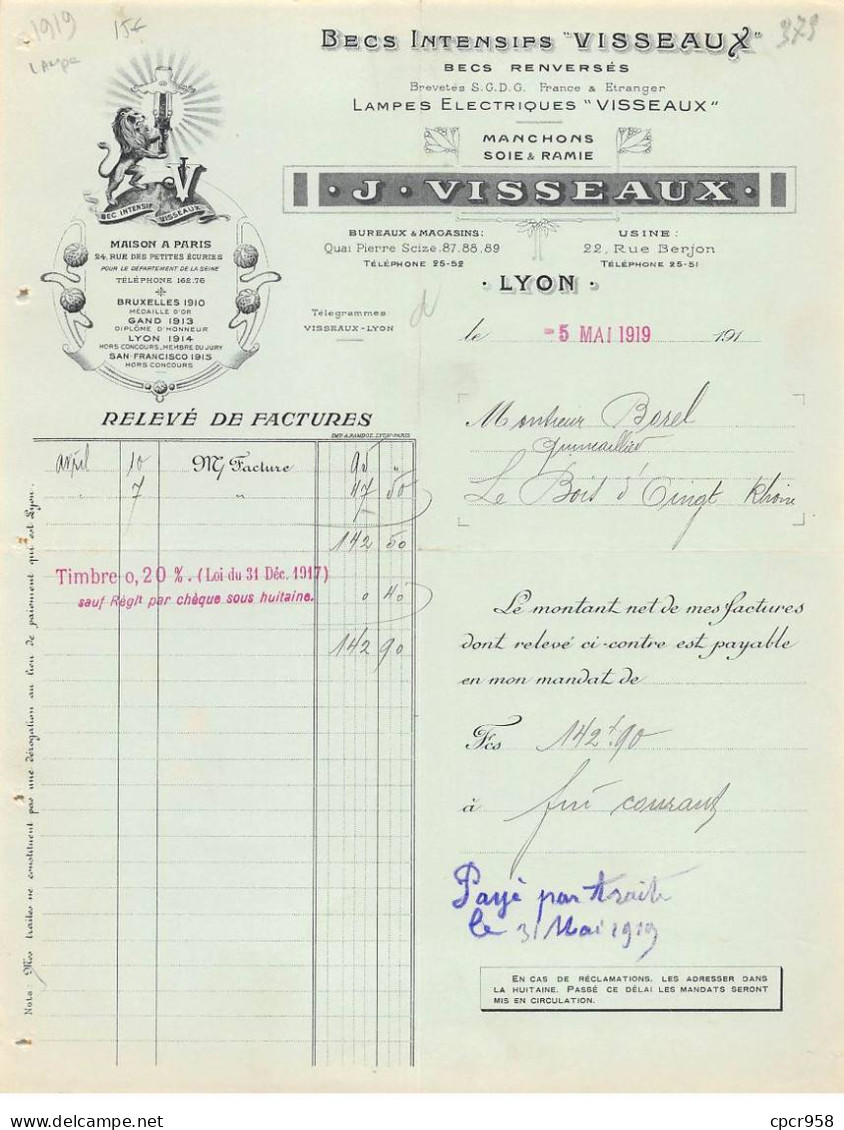 1919
15€
Lampe
379
BECS INTENSIFS "VISSEAUX"
BECS RENVERSÉS
Brevetés S.G.D.G. France & Etranger
LAMPES ELECTRIQUES "VISSEAUX"
MANCHONS
SOIE & RAMIE
J. VISSEAUX
JV
BEC INTENSIF VISSEAUX
MAISON A PARIS
24, RUE DES PETITES ÉCURIES
POUR LE DÉPARTEMENT DE LA SEINE
TÉLÉPHONE 162.76
BRUXELLES 1910
MÉDAILLE D'OR
GAND 1913
DIPLÔME D'HONNEUR
LYON 1914
HORS CONCOURS, MEMBRE DU JURY
SAN-FRANCISCO 1915
HORS CONCOURS
BUREAUX & MAGASINS:
Quai Pierre Scize. 87.88.89
TÉLÉPHONE 25-52
USINE:
22, Rue Berjon
TÉLÉPHONE 25-51
LYON
Télégrammes
VISSEAUX-LYON
le -5 MAI 1919 191
Monsieur Borel
Quincaillier
Le Bois d'Oingt Rhône
RELEVÉ DE FACTURES
IMP. A. RAMBOZ. LYON-PARIS
avril 10 M/ Facture 95 "
" 7 " 47 50
142 50
Timbre 0,20 %. (Loi du 31 Déc. 1917)
sauf Règlt par chèque sous huitaine. 0 40
142 90
Le montant net de mes factures
dont relevé ci-contre est payable
en mon mandat de
Fcs 142f.90
à fin courant
Payé par traite
le 31 Mai 1919
EN CAS DE RÉCLAMATIONS, LES ADRESSER DANS
LA HUITAINE. PASSÉ CE DÉLAI LES MANDATS SERONT
MIS EN CIRCULATION.
Nota: Mes traites ne constituent pas une dérogation au lieu de paiement qui est Lyon.
cpcr958